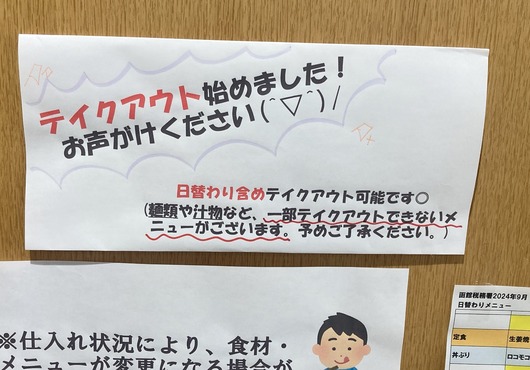 テイクアウト始めました！
お声がけください(^▽^)/
日替わり含めテイクアウト可能です○
(麺類や汁物など、一部テイクアウトできないメ
ニューがございます。予めご了承ください。)
※仕入れ状況により、食材・
メニューが変更になる場合が
函館税務署2024年9月
日替わりメニュー
定食
生姜焼
丼ぶり
ロコモコ